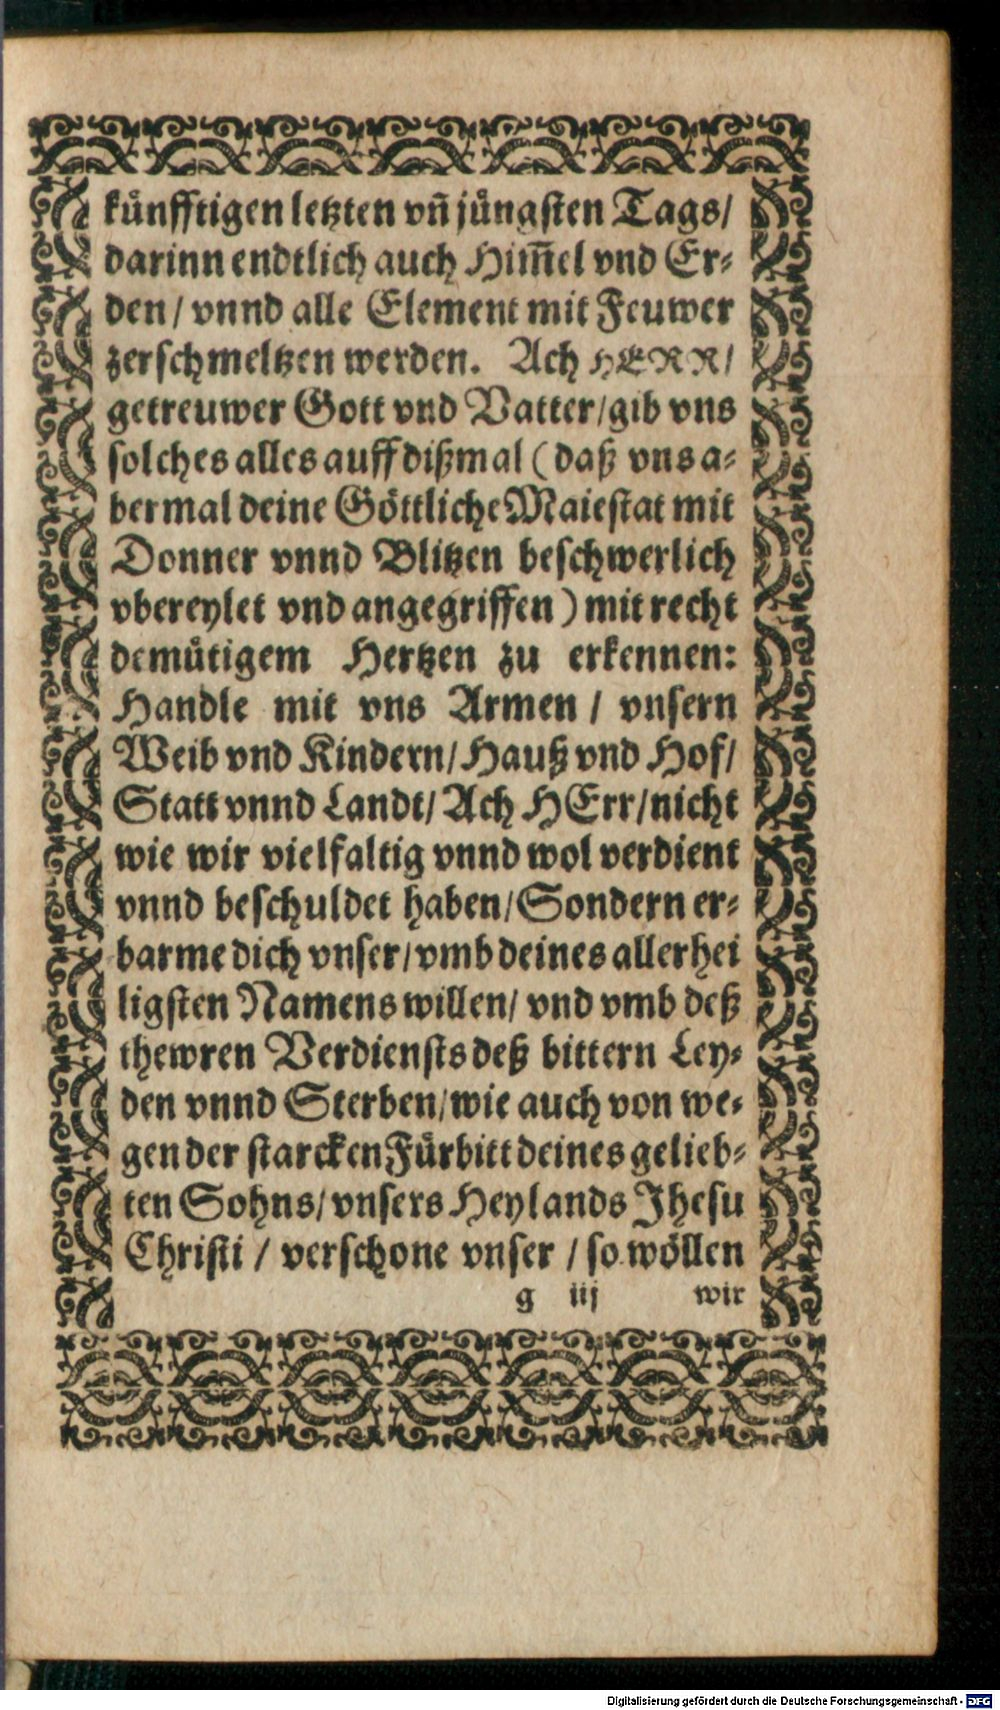 künfftigen letzten vñ jüngsten Tags/
darinn endtlich auch Him̄el vnd Er-
den / vnnd alle Element mit Feuwer
zerschmeltzen werden. Ach HERR/
getreuwer Gott vnd Vatter/gib vns
solches alles auff dißmal (daß vns a-
bermal deine Göttliche Maiestat mit
Donner vnnd Blitzen beschwerlich
vbereylet vnd angegriffen) mit recht
demütigem Hertzen zu erkennen:
Handle mit vns Armen / vnsern
Weib vnd Kindern/Hauß vnd Hof/
Statt vnnd Landt/ Ach HErr/nicht
wie wir vielfaltig vnnd wol verdient
vnnd beschuldet haben/Sondern er-
barme dich vnser/vmb deines allerhei
ligsten Namens willen/ vnd vmb deß
thewren Verdiensts deß bittern Ley-
den vnnd Sterben/wie auch von we-
gen der starcken Fürbitt deines gelieb-
ten Sohns/vnsers Heylands Jhesu
Christi / verschone vnser / so wöllen
g iij wir
Digitalisierung gefördert durch die Deutsche Forschungsgemeinschaft - DFG